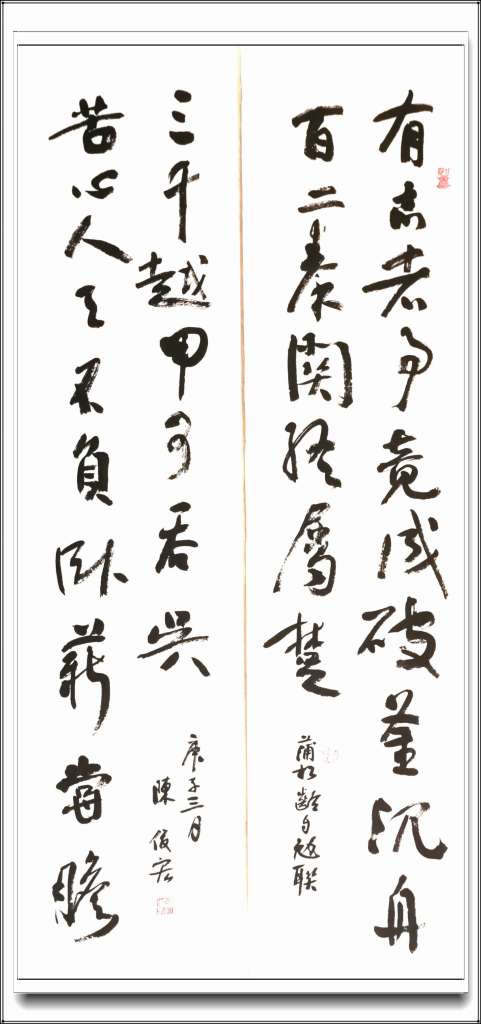 有志者事竟成破釜沉舟
百二秦関終屬楚
蒲松齡自勉聯
苦心人天不負臥薪嘗膽
三千越甲可吞吳
庚子三月
陳俊